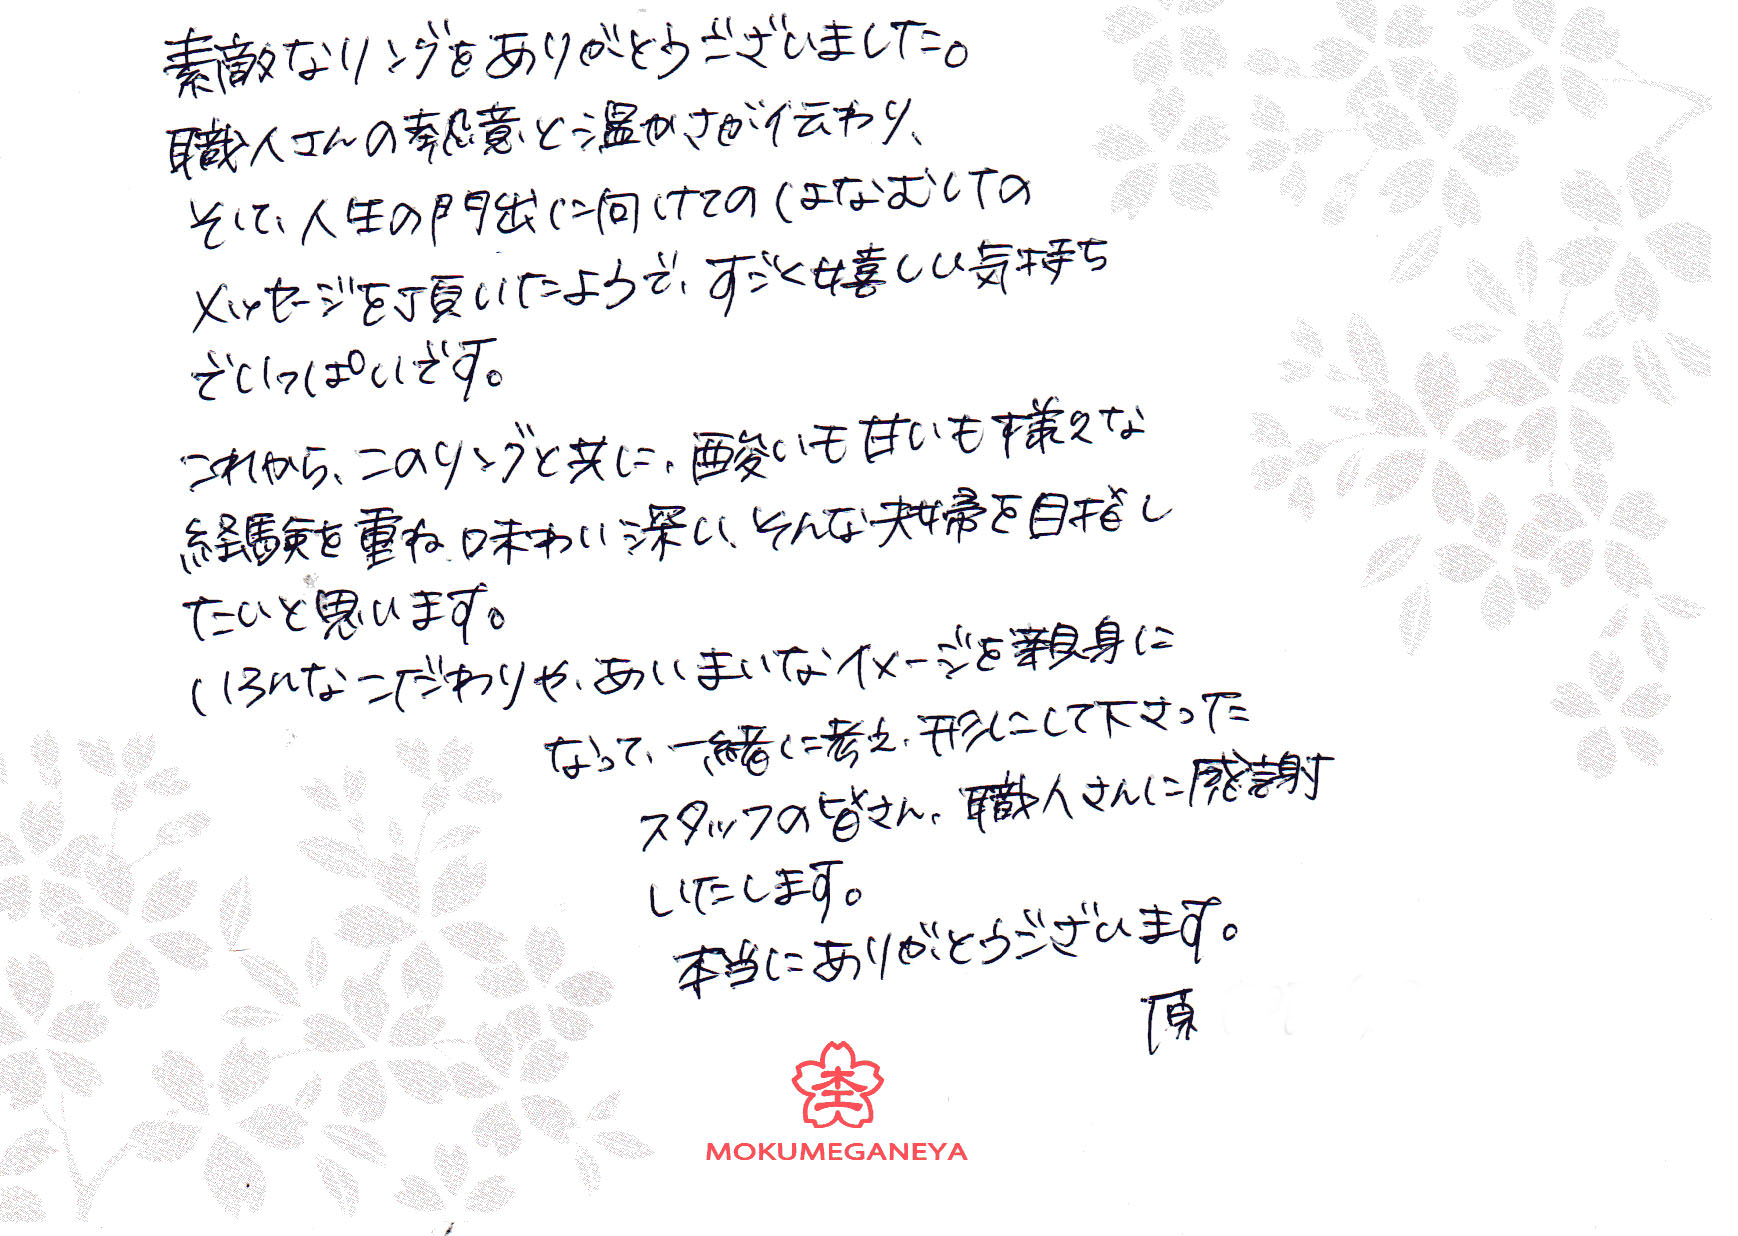 素敵なリングをありがとうございました。
職人さんの熱意と温かさが伝わり、
そして、人生の門出に向けてのはなむしての
メッセージを頂いたようで、すごく嬉しい気持ち
でいっぱいです。
これから、このリングと共に、酸いも甘いも様々な
経験を重ね、味わい深い、そんな夫婦を目指し
たいと思います。
いろんなこだわりや、あいまいなイメージを親身に
なって、一緒に考え、形にして下さった
スタッフの皆さん、職人さんに感謝
いたします。
本当にありがとうございます。
原
MOKUMEGANEYA